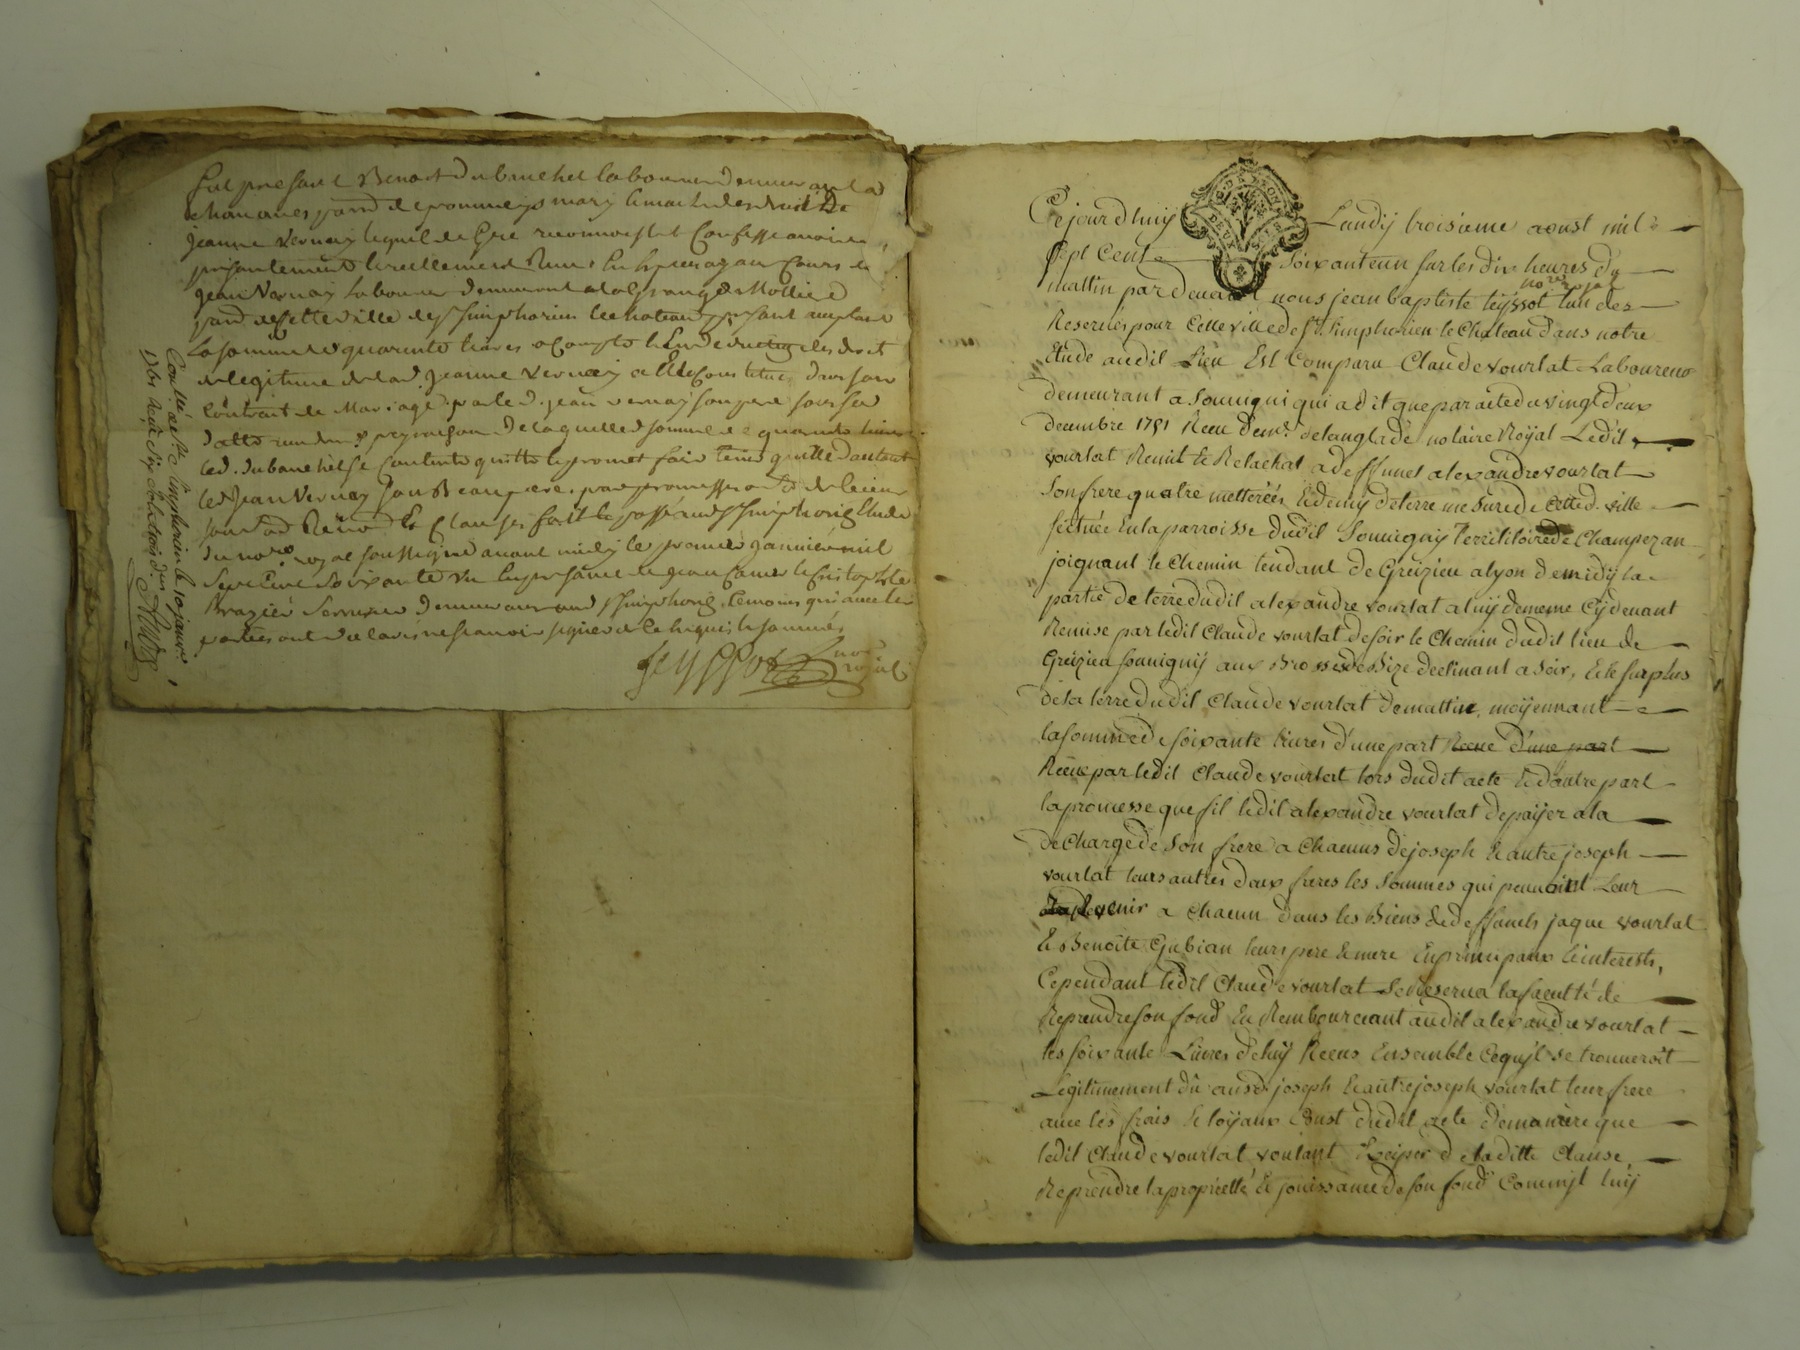 Fut present Benoit Dubanchet laboureur demeurant a
parr. de pommeys mary et maitre des droits de
jeanne vernay lequel de Gré reconnoist et Confesse avoir
presentement et reellement
jean vernay laboureur demeurant a la grange Mollie
parr. de cette ville de st simphorien le chateau present acceptant
la somme de quarante livres a Compte et en deduction des droits
de legitime de lad. jeanne vernay a Elle Constitué dans son
Contrat de Mariage par led. jean vernay son pere sous sa
datte de laquelle somme de quarante livres
led. dubanchet se Contente quitte et promet faire tenir quitte d'autant
led. jean vernay son Beaupere, par promesses
Clauses fait et passé aud. st simphorien Etude
du no.re royal soussigné avant midy le premier janvier mil
sept Cent soixante un En presence de jean et Cristophle
Brazier serrurier demeurant aud. st simphorien, temoins qui avec les
parties ont declaré ne scavoir signer de ce Enquis et sommés
Teyssot no.re royal
Conllé a St Simphorien le 10 janvr.
1761 Reçu
Ce jourd'huy Lundy troisieme aoust mil
sept Cent soixante un sur les dix heures du
mattin par devant nous jean baptiste teyssot l'un des nores royaux
Reservés pour Cette ville de st simphorien le Chateau dans notre
Etude audit Lieu Est Comparu Claude vourlat Laboureur
demeurant a Souvigni qui a dit que par acte du vingt deux
decembre 1751 Receu dem.e delanglade notaire Royal Ledit
vourlat Remit Et Relachat a deffunct alexandre vourlat
son frere quatre metterées Et demy de terre mesure de Cette d. ville
scituée En la parroisse dudit Souvigny Territoire de Champezan
joignant le Chemin tendant de Greizieu a lyon de midy la
partie de terre dudit alexandre vourlat a luy de meme Cy devant
Remise par ledit Claude vourlat de soir le Chemin dudit lieu de
Greizieu Souvigny aux Brosses de Bize declinant a soir, Et le surplus
de la terre dudit Claude vourlat de mattin, moyennant
la somme de soixante livres d'une part Receue d'une part
Receue par ledit Claude vourlat lors dudit acte Et d'autre part
la promesse que fit ledit alexandre vourlat de payer a la
decharge de son frere a Chacuns de joseph Et autre joseph
vourlat leurs autres deux freres les sommes qui pouvoint Leur
revenir a Chacun dans les Biens de deffuncts jaque vourlat
Et Benoite Gubian leurs pere Et mere En principaux Et interests,
Cependant ledit Claude vourlat se Reserva la faculté de
Reprendre son fond En Rembourceant audit alexandre vourlat
les soixante Livres de luy Receus Ensemble Ce qu'jl se trouveroit
Legitimement dû ausd. joseph Et autre joseph vourlat leur frere
avec les frais Et loyaux Coust dudit acte de maniere que
ledit Claude vourlat voulant de laditte Clause,
Reprendre la proprietté Et jouissance de son fond Convinjt luy